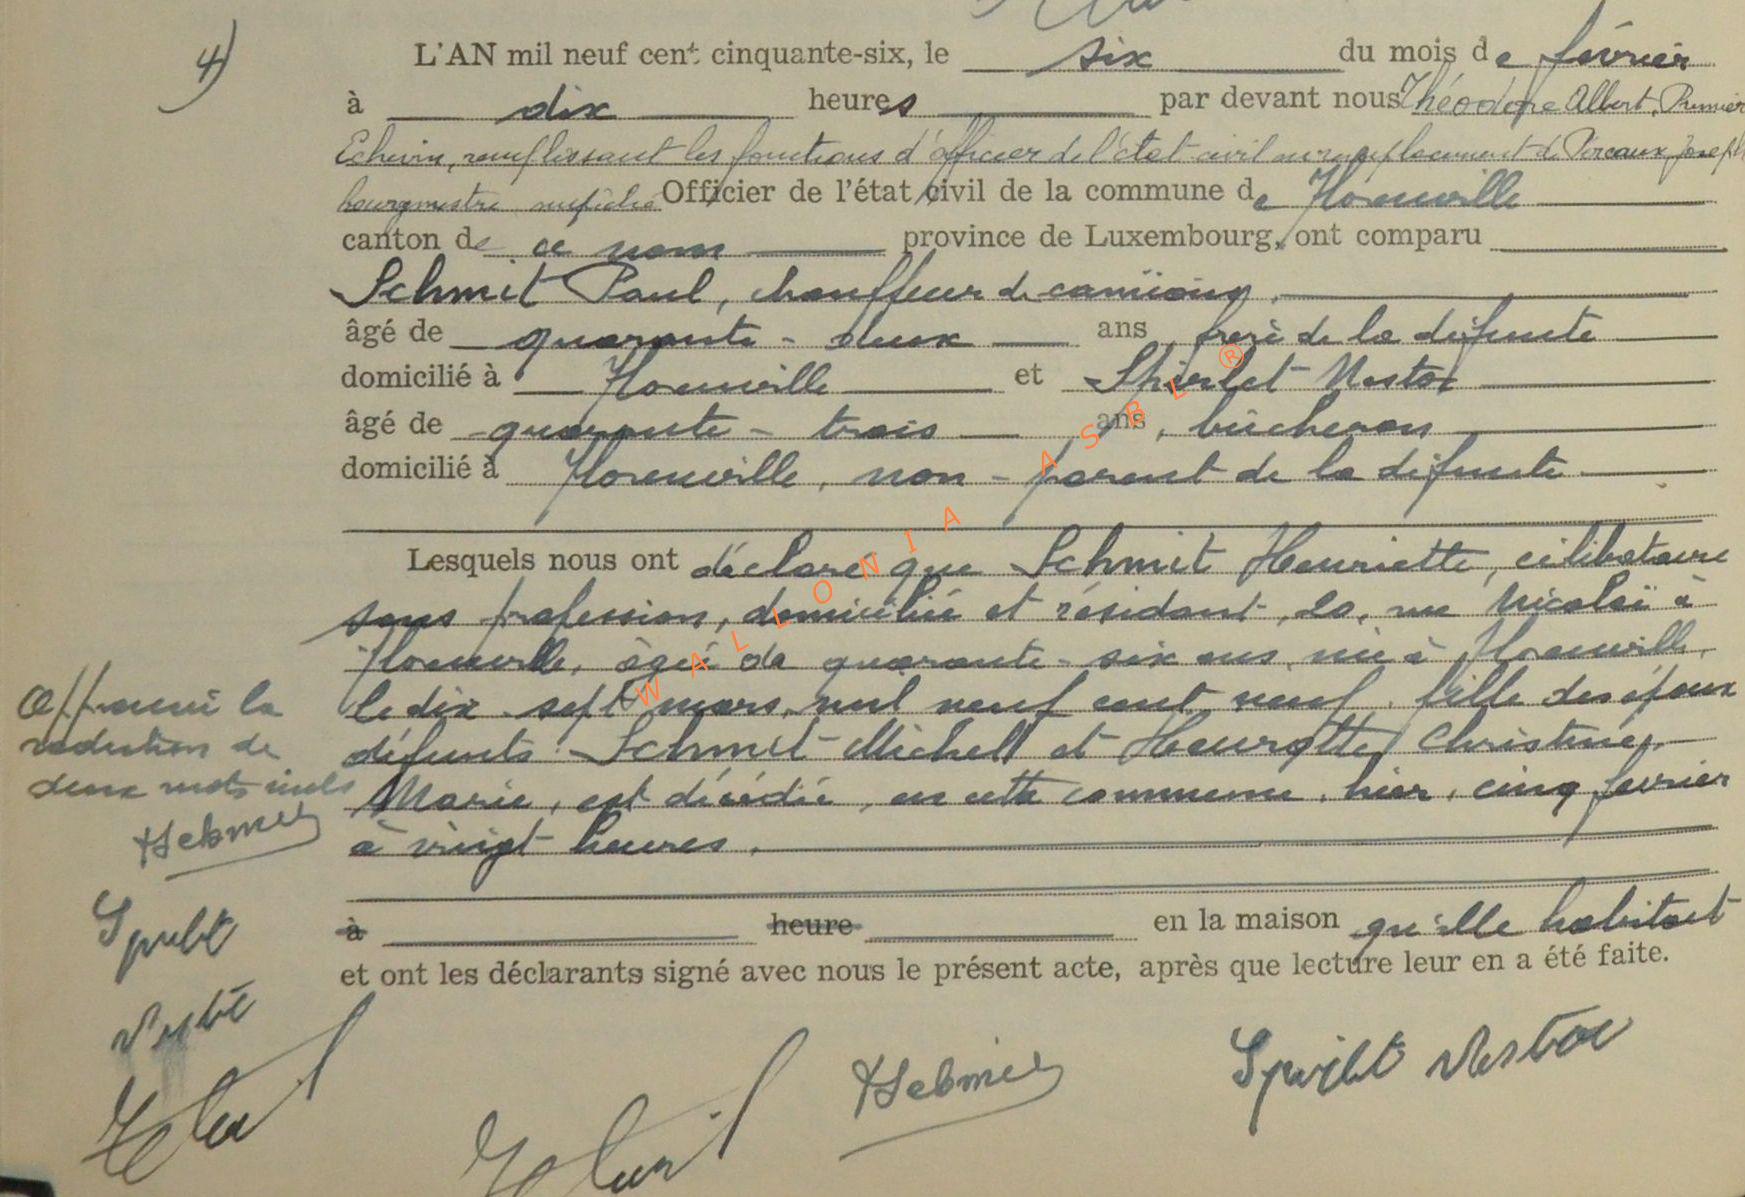 4)
L'AN mil neuf cent cinquante-six, le six du mois de février
à dix heures par devant nous Théodore Albert, Premier
Echevin, remplissant les fonctions d'officier de l'état-civil en remplacement de Pircaux Joseph
bourgmestre empêché Officier de l'état civil de la commune de Florenville
canton de ce nom province de Luxembourg, ont comparu
Schmit Paul, chauffeur de camions,
âgé de quarante-deux ans, frère de la défunte
domicilié à Florenville et Spirlet Nestor
âgé de quarante-trois ans, bûcheron
domicilié à Florenville, non-parent de la défunte
Lesquels nous ont déclaré que Schmit Henriette, célibataire
sans profession, domiciliée et résidant, 20, rue Nicolaï à
Florenville, âgée de quarante-six ans, née à Florenville,
le dix-sept mars, mil neuf cent neuf, fille des époux
défunts: Schmit Michel et Henrotte, Christine,
Marie, est décédée, en cette commune, hier, cinq février
à vingt heures.
à heure en la maison qu'elle habitait
et ont les déclarants signé avec nous le présent acte, après que lecture leur en a été faite.
Approuvé la
radiation de
deux mots nuls
Spirlet
Nestor
Spirlet Nestor
WALLONIA ASBL ®